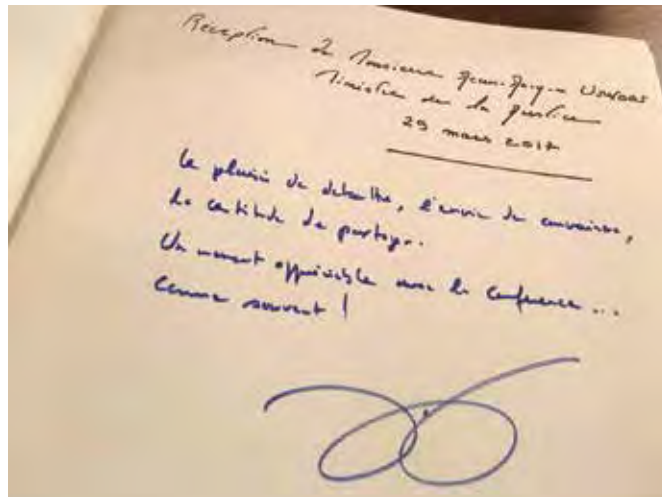 Réception de Monsieur Jean-Jacques URVOAS
Ministre de la Justice
29 mars 2017
Le plaisir de débattre, l'envie de convaincre,
la certitude de partager.
Un moment appréciable avec la Conférence ...
comme souvent !